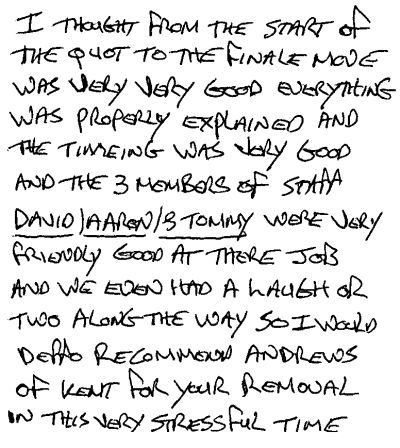 I THOUGHT FROM THE START OF
THE QUOT TO THE FINALE MOVE
WAS VERY VERY GOOD EVERYTHING
WAS PROPERLY EXPLAINED AND
THE TIMEING WAS VERY GOOD
AND THE 3 MEMBERS OF STAFF
DAVID/AARON/& TOMMY WERE VERY
FRIENDLY GOOD AT THERE JOB
AND WE EVEN HAD A LAUGH OR
TWO ALONG THE WAY SO I WOULD
DEFFO RECOMMEND ANDREWS
OF KENT FOR YOUR REMOVAL
IN THIS VERY STRESSFUL TIME